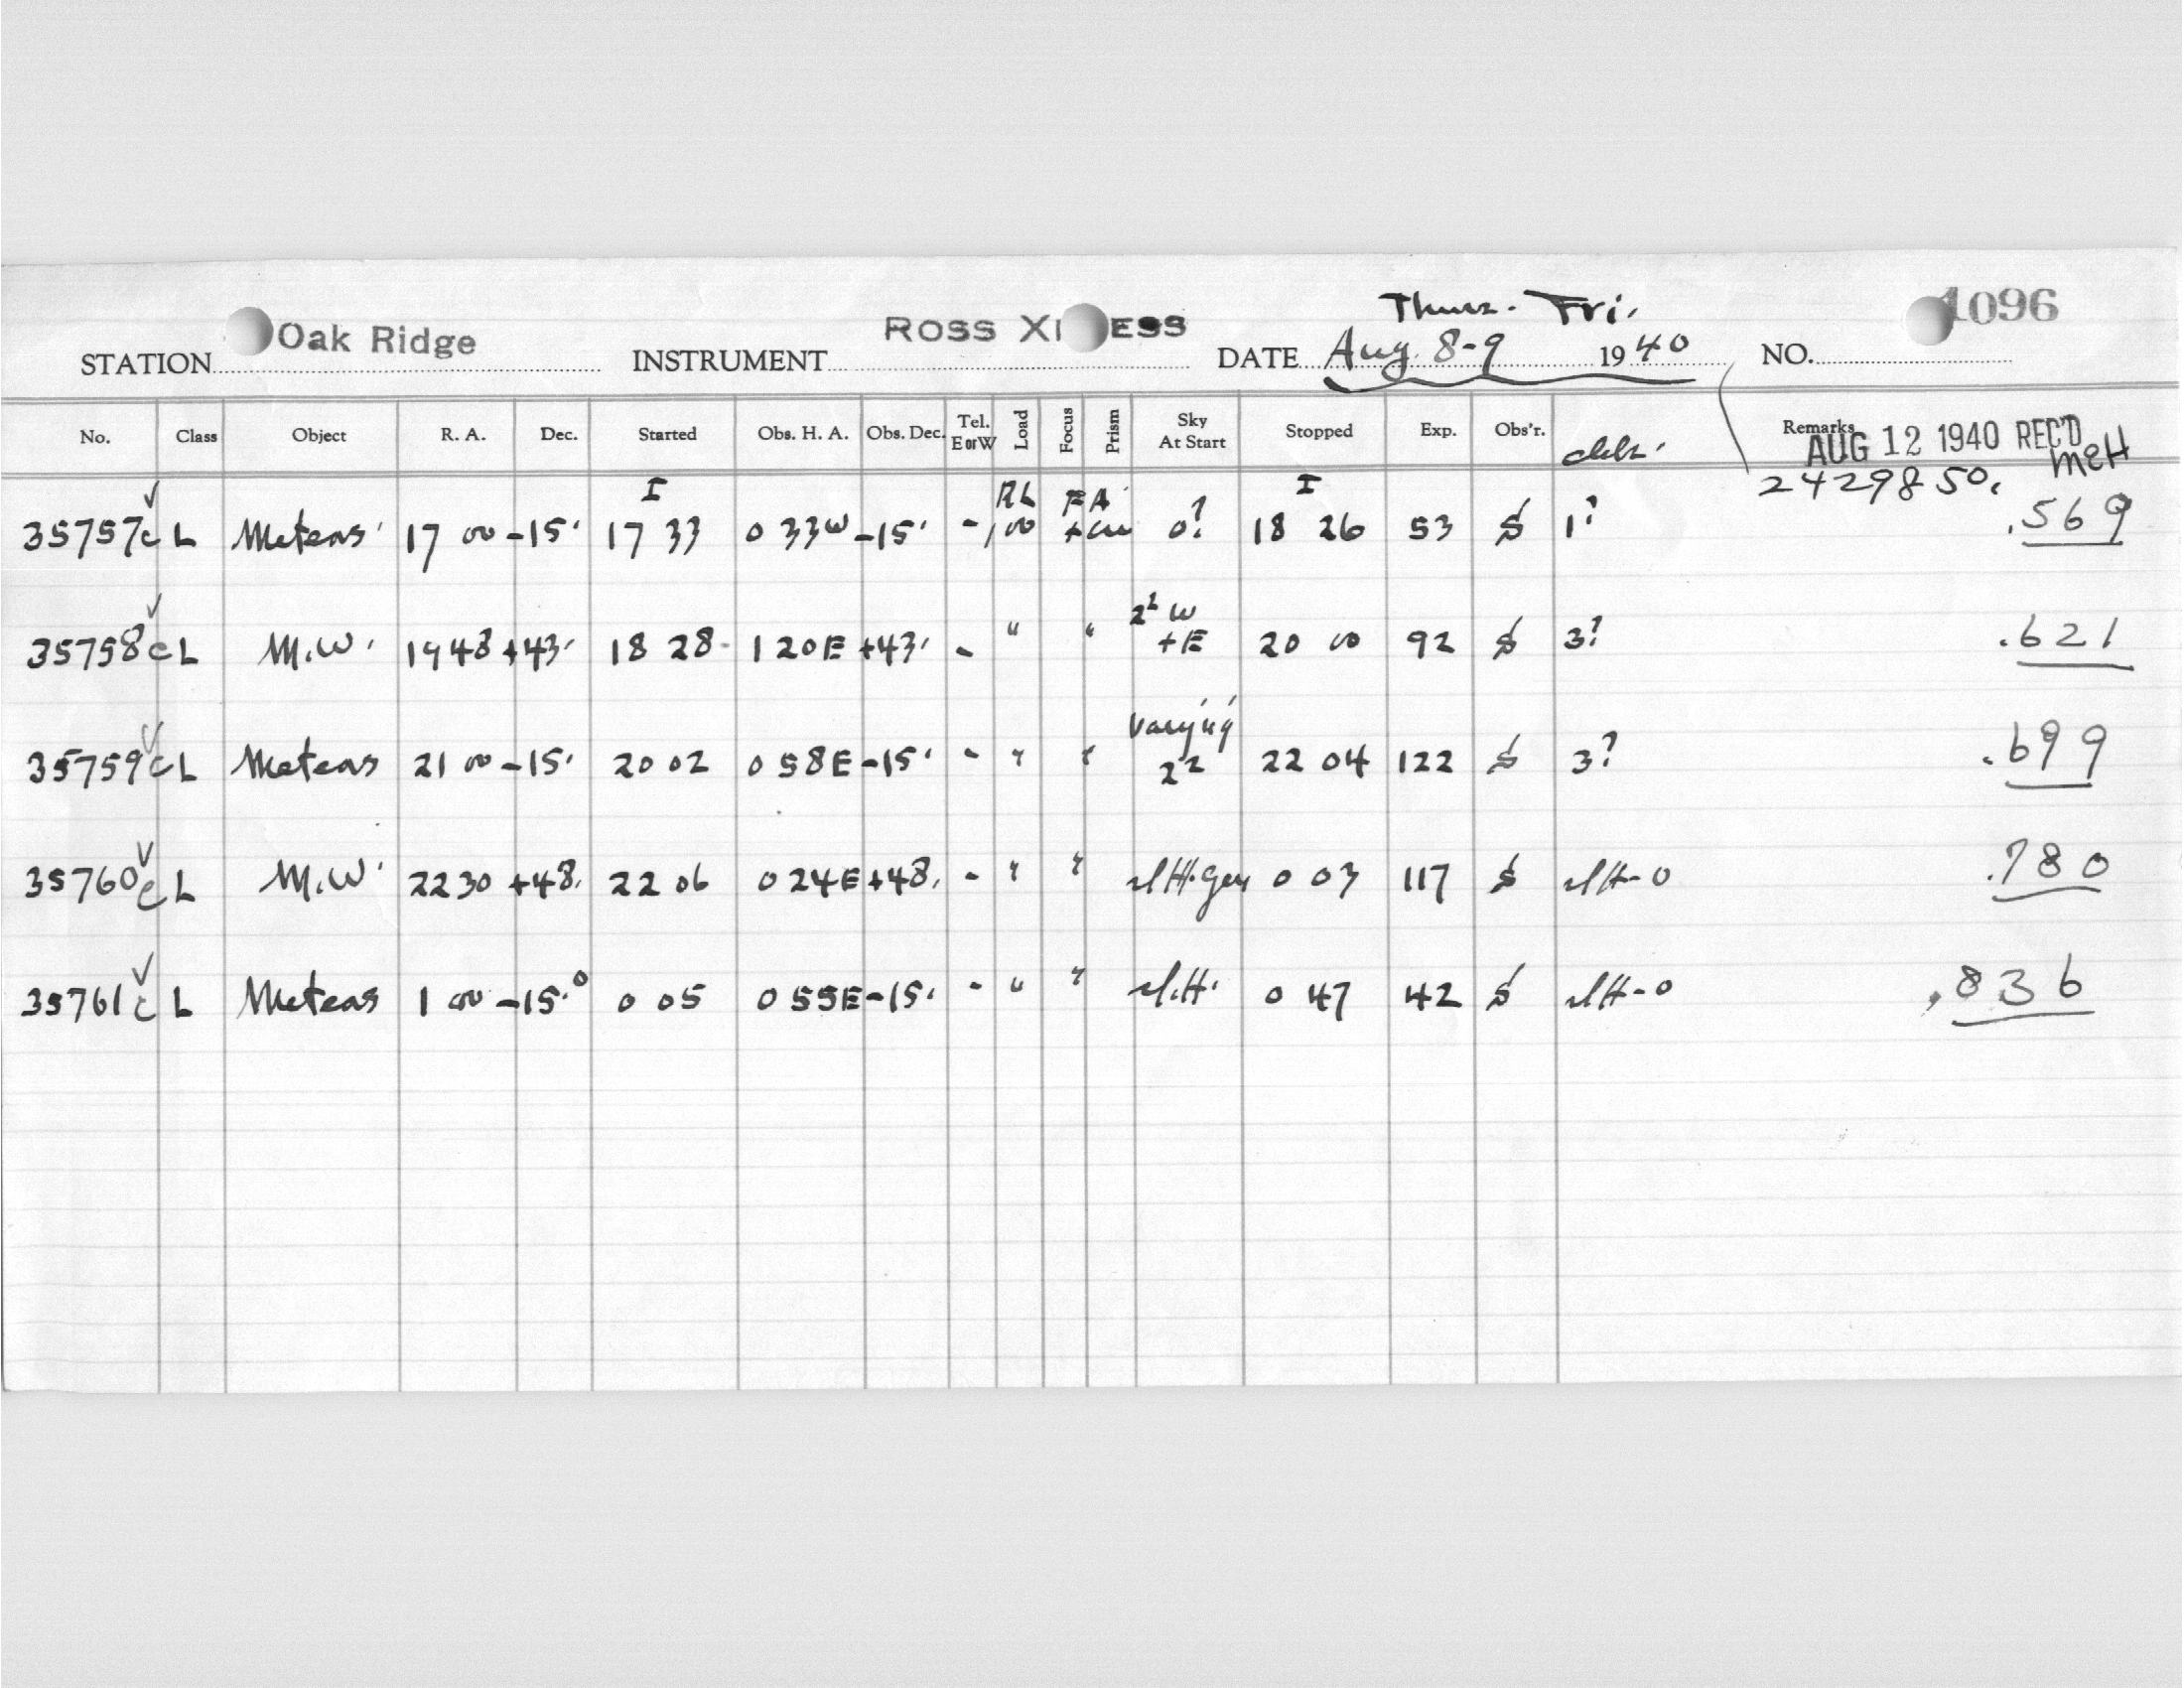 Thurs. Fri.
STATION Oak Ridge INSTRUMENT ROSS X ESS DATE Aug. 8-9 1940 NO. 1096
No. Class Object R. A. Dec. Started Obs. H. A. Obs. Dec. Tel. E or W Load Focus Prism Sky At Start Stopped Exp. Obs'r. Remarks
AUG 12 1940 REC'D
McH
2429850.
I RL FA I
35757c L Meteors 17 00 -15. 17 33 0 33W -15. - 100 0? 18 26 53 $ 1? .569
2² W
35758c L M.W. 19 48 +43. 18 28 1 20E +43. - " " +E 20 00 92 $ 3? .621
Varying
35759c L Meteors 21 00 -15. 20 02 0 58E -15. - " " 2² 22 04 122 $ 3? .699
35760c L M.W. 22 30 +48. 22 06 0 24E +48. - " " slH. 0 03 117 $ slH-0 .780
35761c L Meteors 1 00 -15.° 0 05 0 55E -15. - " " sl.H. 0 47 42 $ slH-0 .836